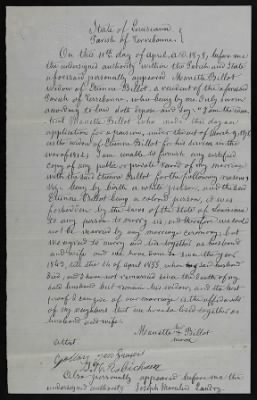 State of Louisiana
Parish of Terrebonne
On this 11th day of April, A.D. 1878, before me
the undersigned authority within the Parish and State
aforesaid personally appeared Manette Billot
widow of Etienne Billot, a resident of the aforesaid
Parish of Terrebonne, who being by me duly sworn
according to law doth depose and say:
Manette Billot who made this day an
application for a pension, under the act of
as the widow of Etienne Billot for his services in the
war of 1812; I am unable to furnish any certified
copy of any public or private record of my marriage
with the said Etienne Billot for the following reasons
being by birth a white person, and the said
Etienne Billot being a colored person, it was
forbidden by the laws of the State of Louisiana
to any person to marry us, and therefore we could
not be married by any marriage ceremony; but
we agreed to marry and live together as husband
and wife and we have done so
till the 14 of April 1855 when said husband
died, and I have not remarried since the death of my
said husband but remain his widow, and the best
proof I can give of our marriage is the affidavits
of my neighbors that we have lived together as
husband and wife.
Manette Billot
mark
Attest
Also personally appeared before me the
undersigned authority Joseph